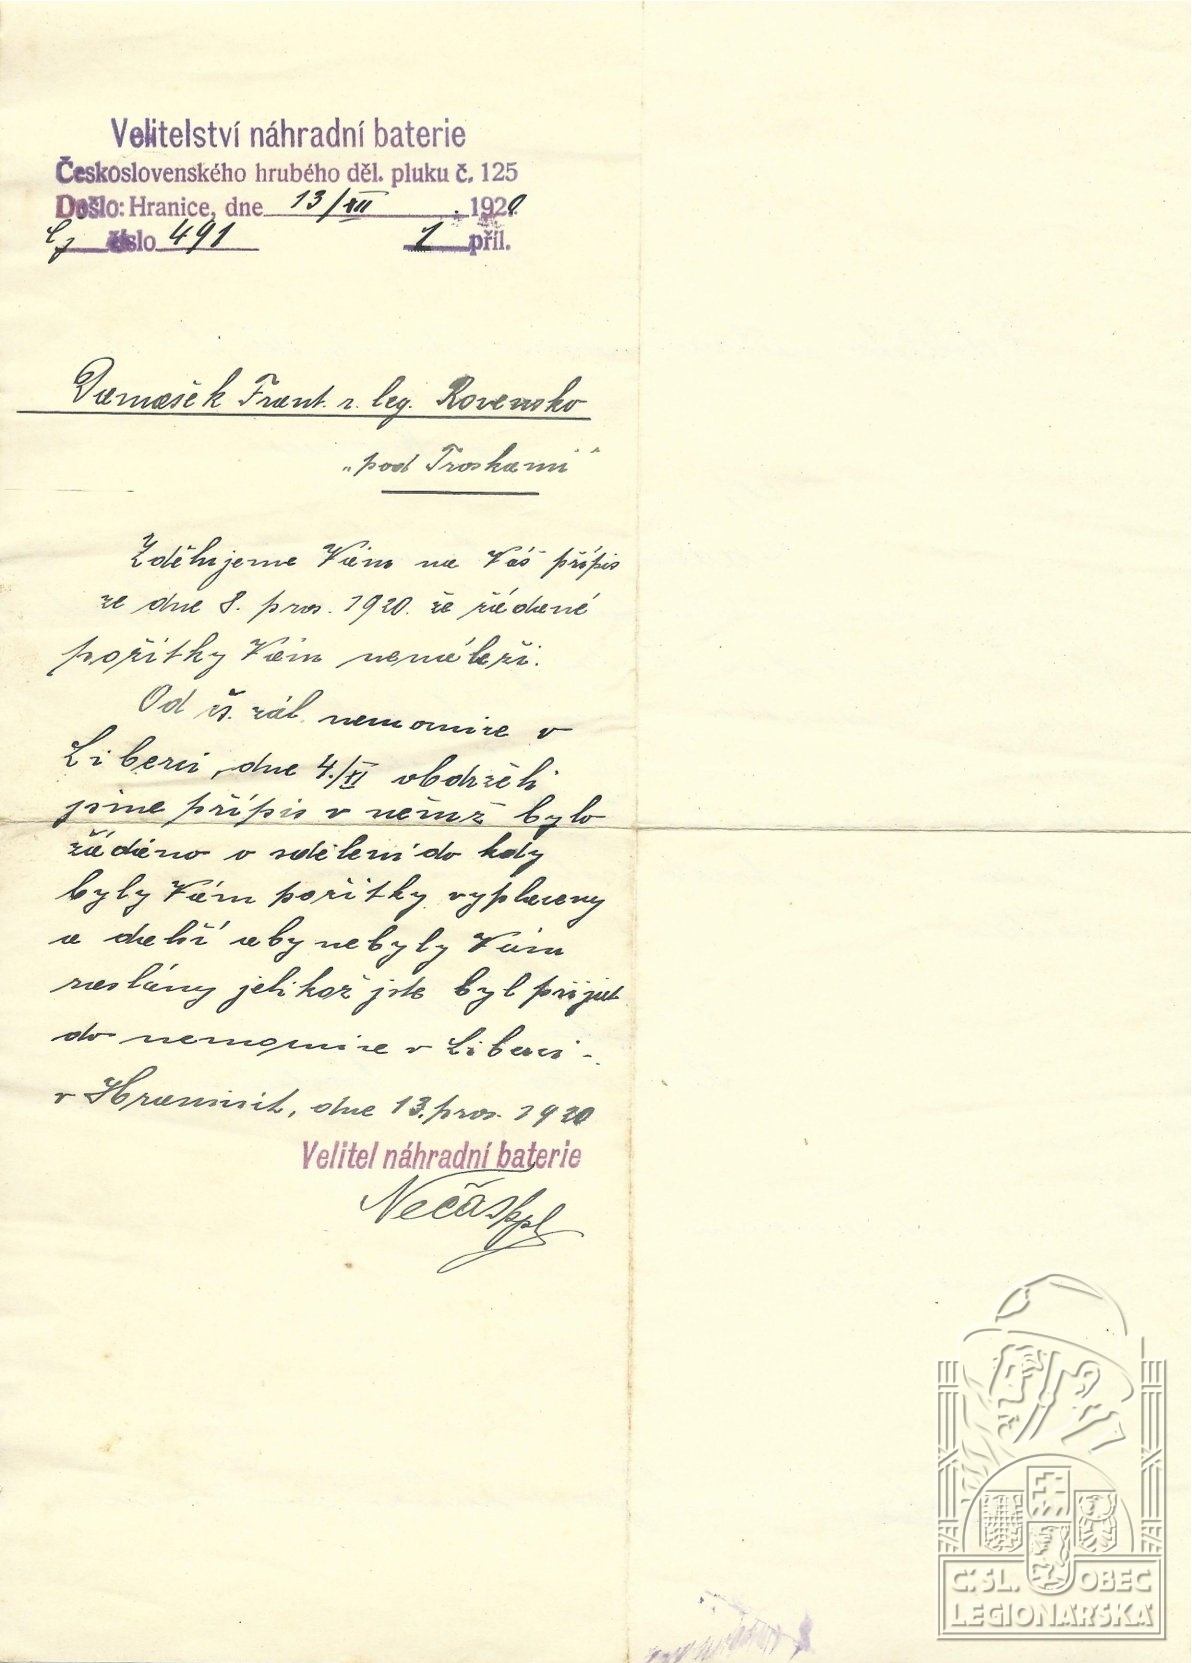 Velitelství náhradní baterie
Československého hrubého děl. pluku č. 125
Došlo: Hranice, dne 13/XII 1920
Čj číslo 491 1 příl.
Damašek Frant. r. leg. Rovensko
„pod Troskami"
Zdělujeme Vám na Váš přípis
ze dne 8. pros. 1920. že žádané
požitky Vám nenáleží.
Od čs. zál. nemocnice v
Liberci, dne 4./XI obdrželi
jsme přípis v němž bylo
žádáno o sdělení do kdy
byly Vám požitky vyplaceny
a další aby nebyly Vám
zaslány jelikož jste byl přijat
do nemocnice v Liberci -.
v Hranicích, dne 13. pros. 1920
Velitel náhradní baterie
Nečas
Č. SL. OBEC
LEGIONÁŘSKÁ